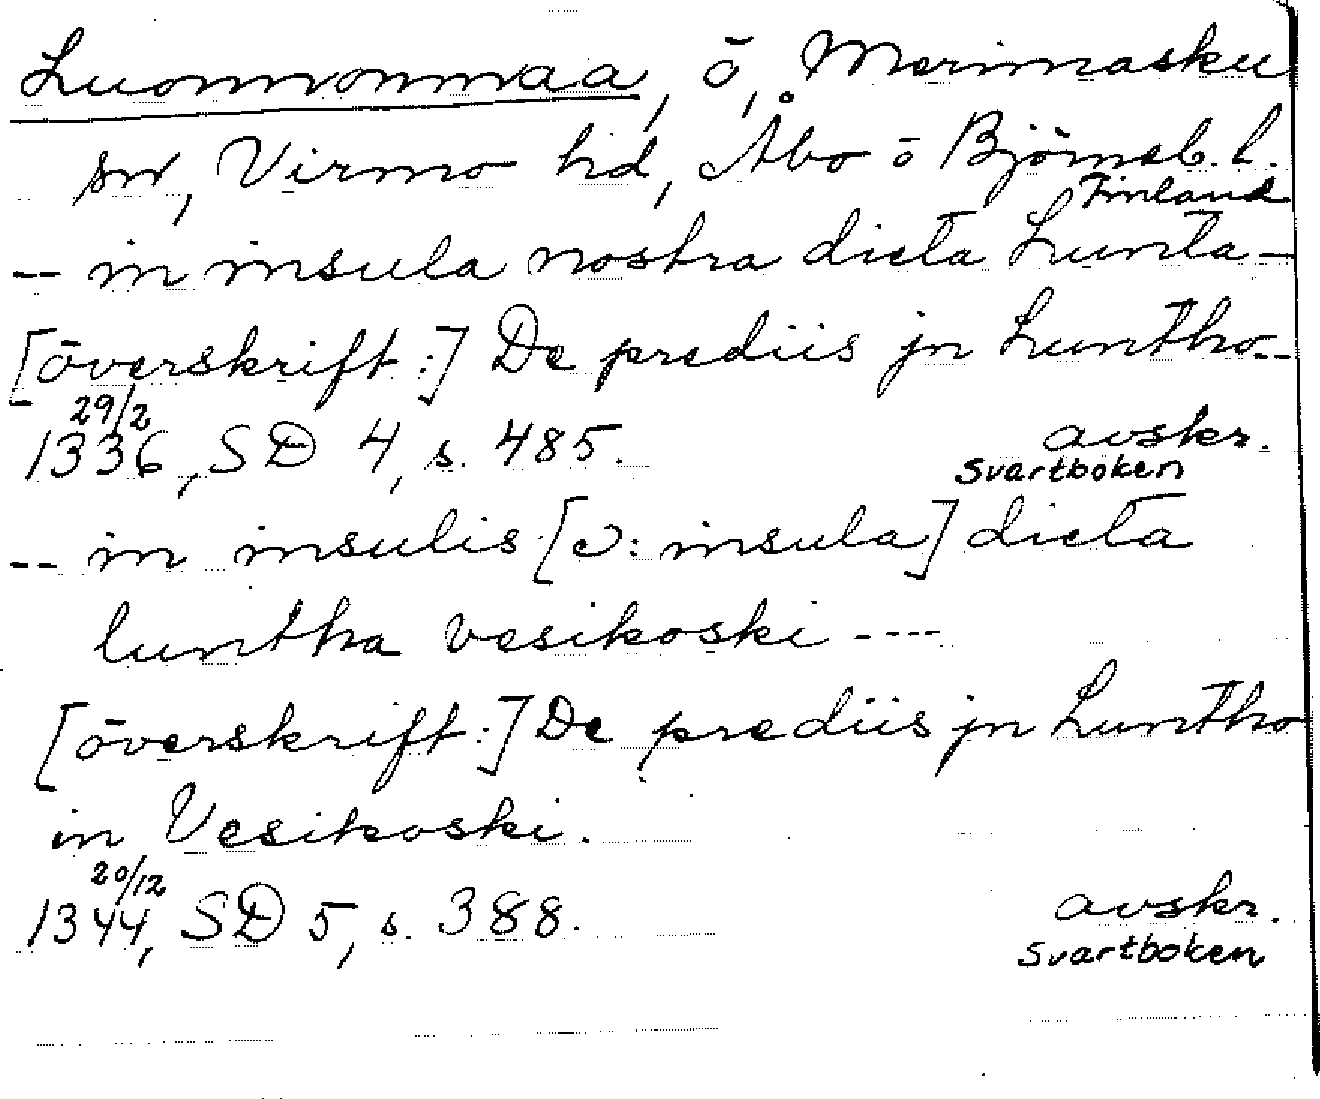 Luonnonmaa, ö, Merimasku
sn, Virmo hd, Åbo o Björneb. l.
Finland
-- in insula nostra dicta Lunta –
[överskrift:] De prediis jn Luntho--
29/2
1336, SD 4, s. 485. avskr.
Svartboken
-- in insulis [ɔ: insula] dicta
luntha vesikoski ----
[överskrift:] De prediis jn Luntho
in Vesikoski.
20/12
1344, SD 5, s. 388. avskr.
Svartboken